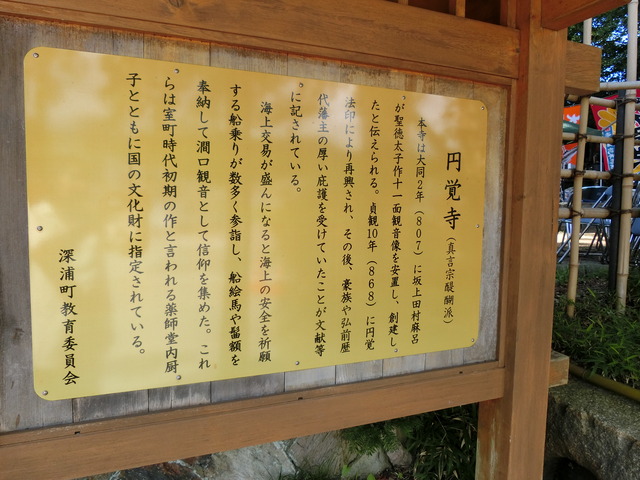 円覚寺（真言宗醍醐派）
本寺は大同２年（８０７）に坂上田村麻呂
が聖徳太子作十一面観音像を安置し、創建し
たと伝えられる。貞観10年（８６８）に円覚
法印により再興され、その後、豪族や弘前歴
代藩主の厚い庇護を受けていたことが文献等
に記されている。
海上交易が盛んになると海上の安全を祈願
する船乗りが数多く参詣し、船絵馬や髷額を
奉納して澗口観音として信仰を集めた。これ
らは室町時代初期の作と言われる薬師堂内厨
子とともに国の文化財に指定されている。
深浦町教育委員会